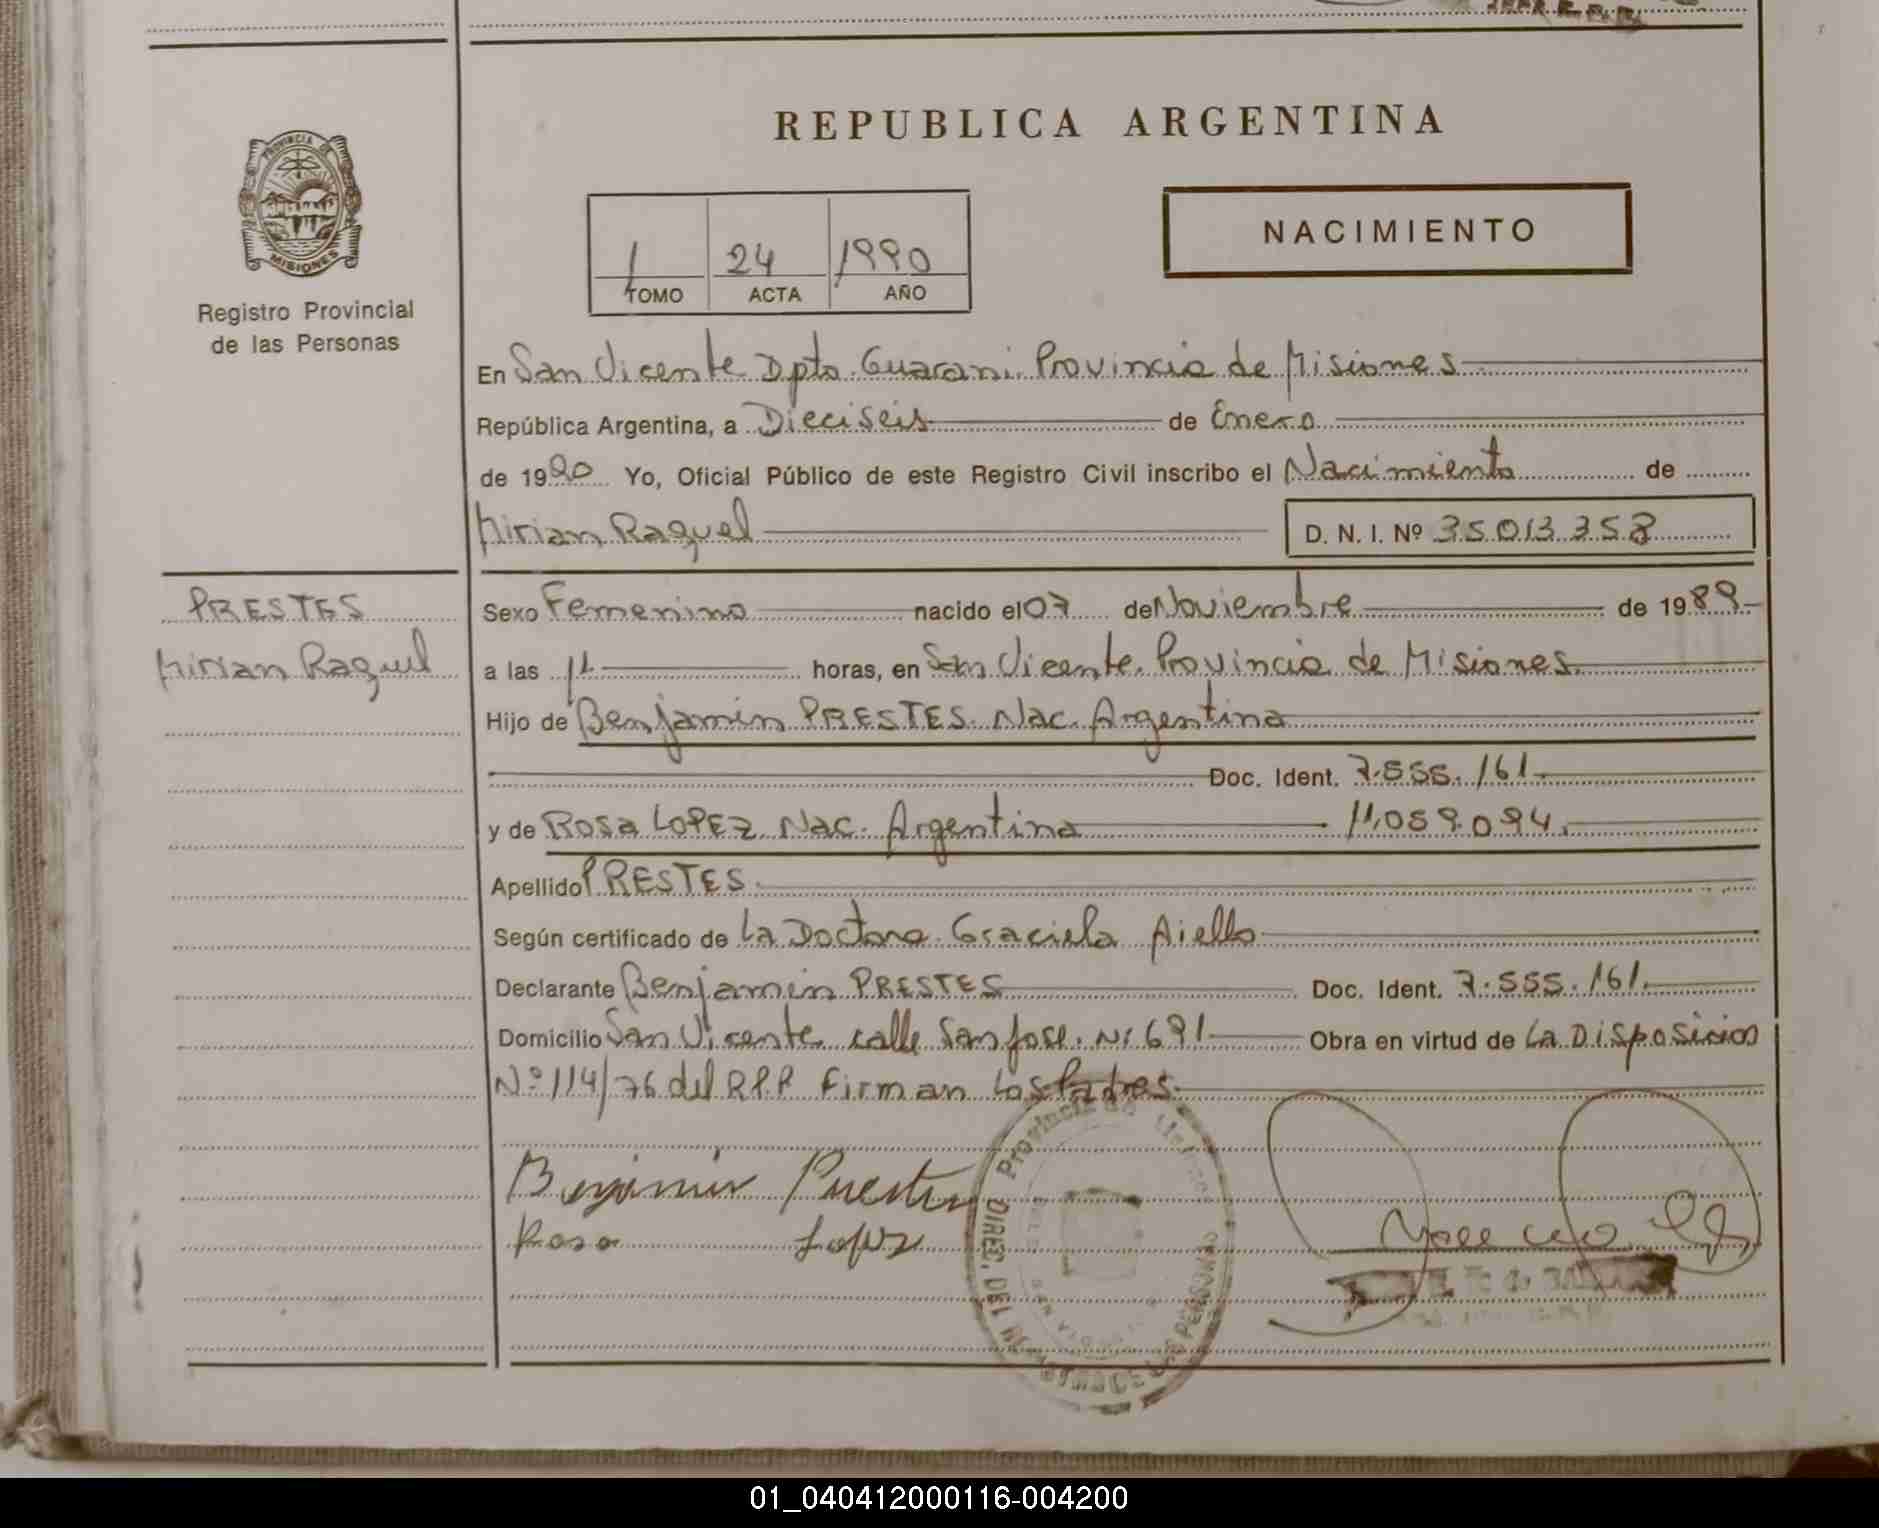 REPUBLICA ARGENTINA
PROVINCIA DE
MISIONES
Registro Provincial
de las Personas
1 24 1990
TOMO ACTA AÑO
NACIMIENTO
En San Vicente Dpto. Guarani. Provincia de Misiones
República Argentina, a Dieciseis de Enero
de 1990 Yo, Oficial Público de este Registro Civil inscribo el Nacimiento de
Mirian Raquel D. N. I. Nº 35.013.358
PRESTES
Mirian Raquel
Sexo Femenino nacido el 07 de Noviembre de 1989
a las 11 horas, en San Vicente. Provincia de Misiones.
Hijo de Benjamin PRESTES. Nac. Argentina
Doc. Ident. 7.555.161
y de ROSA LOPEZ Nac. Argentina 11.059.094.
Apellido PRESTES.
Según certificado de La Doctora Graciela Aiello
Declarante Benjamin PRESTES Doc. Ident. 7.555.161.
Domicilio San Vicente calle San Jose. Nº 691 Obra en virtud de La Disposicion
Nº 114/76 del R.P.P. Firman Los Padres.
Provincia de Misiones
Benjamin Prestes
Rosa Lopez
01_040412000116-004200